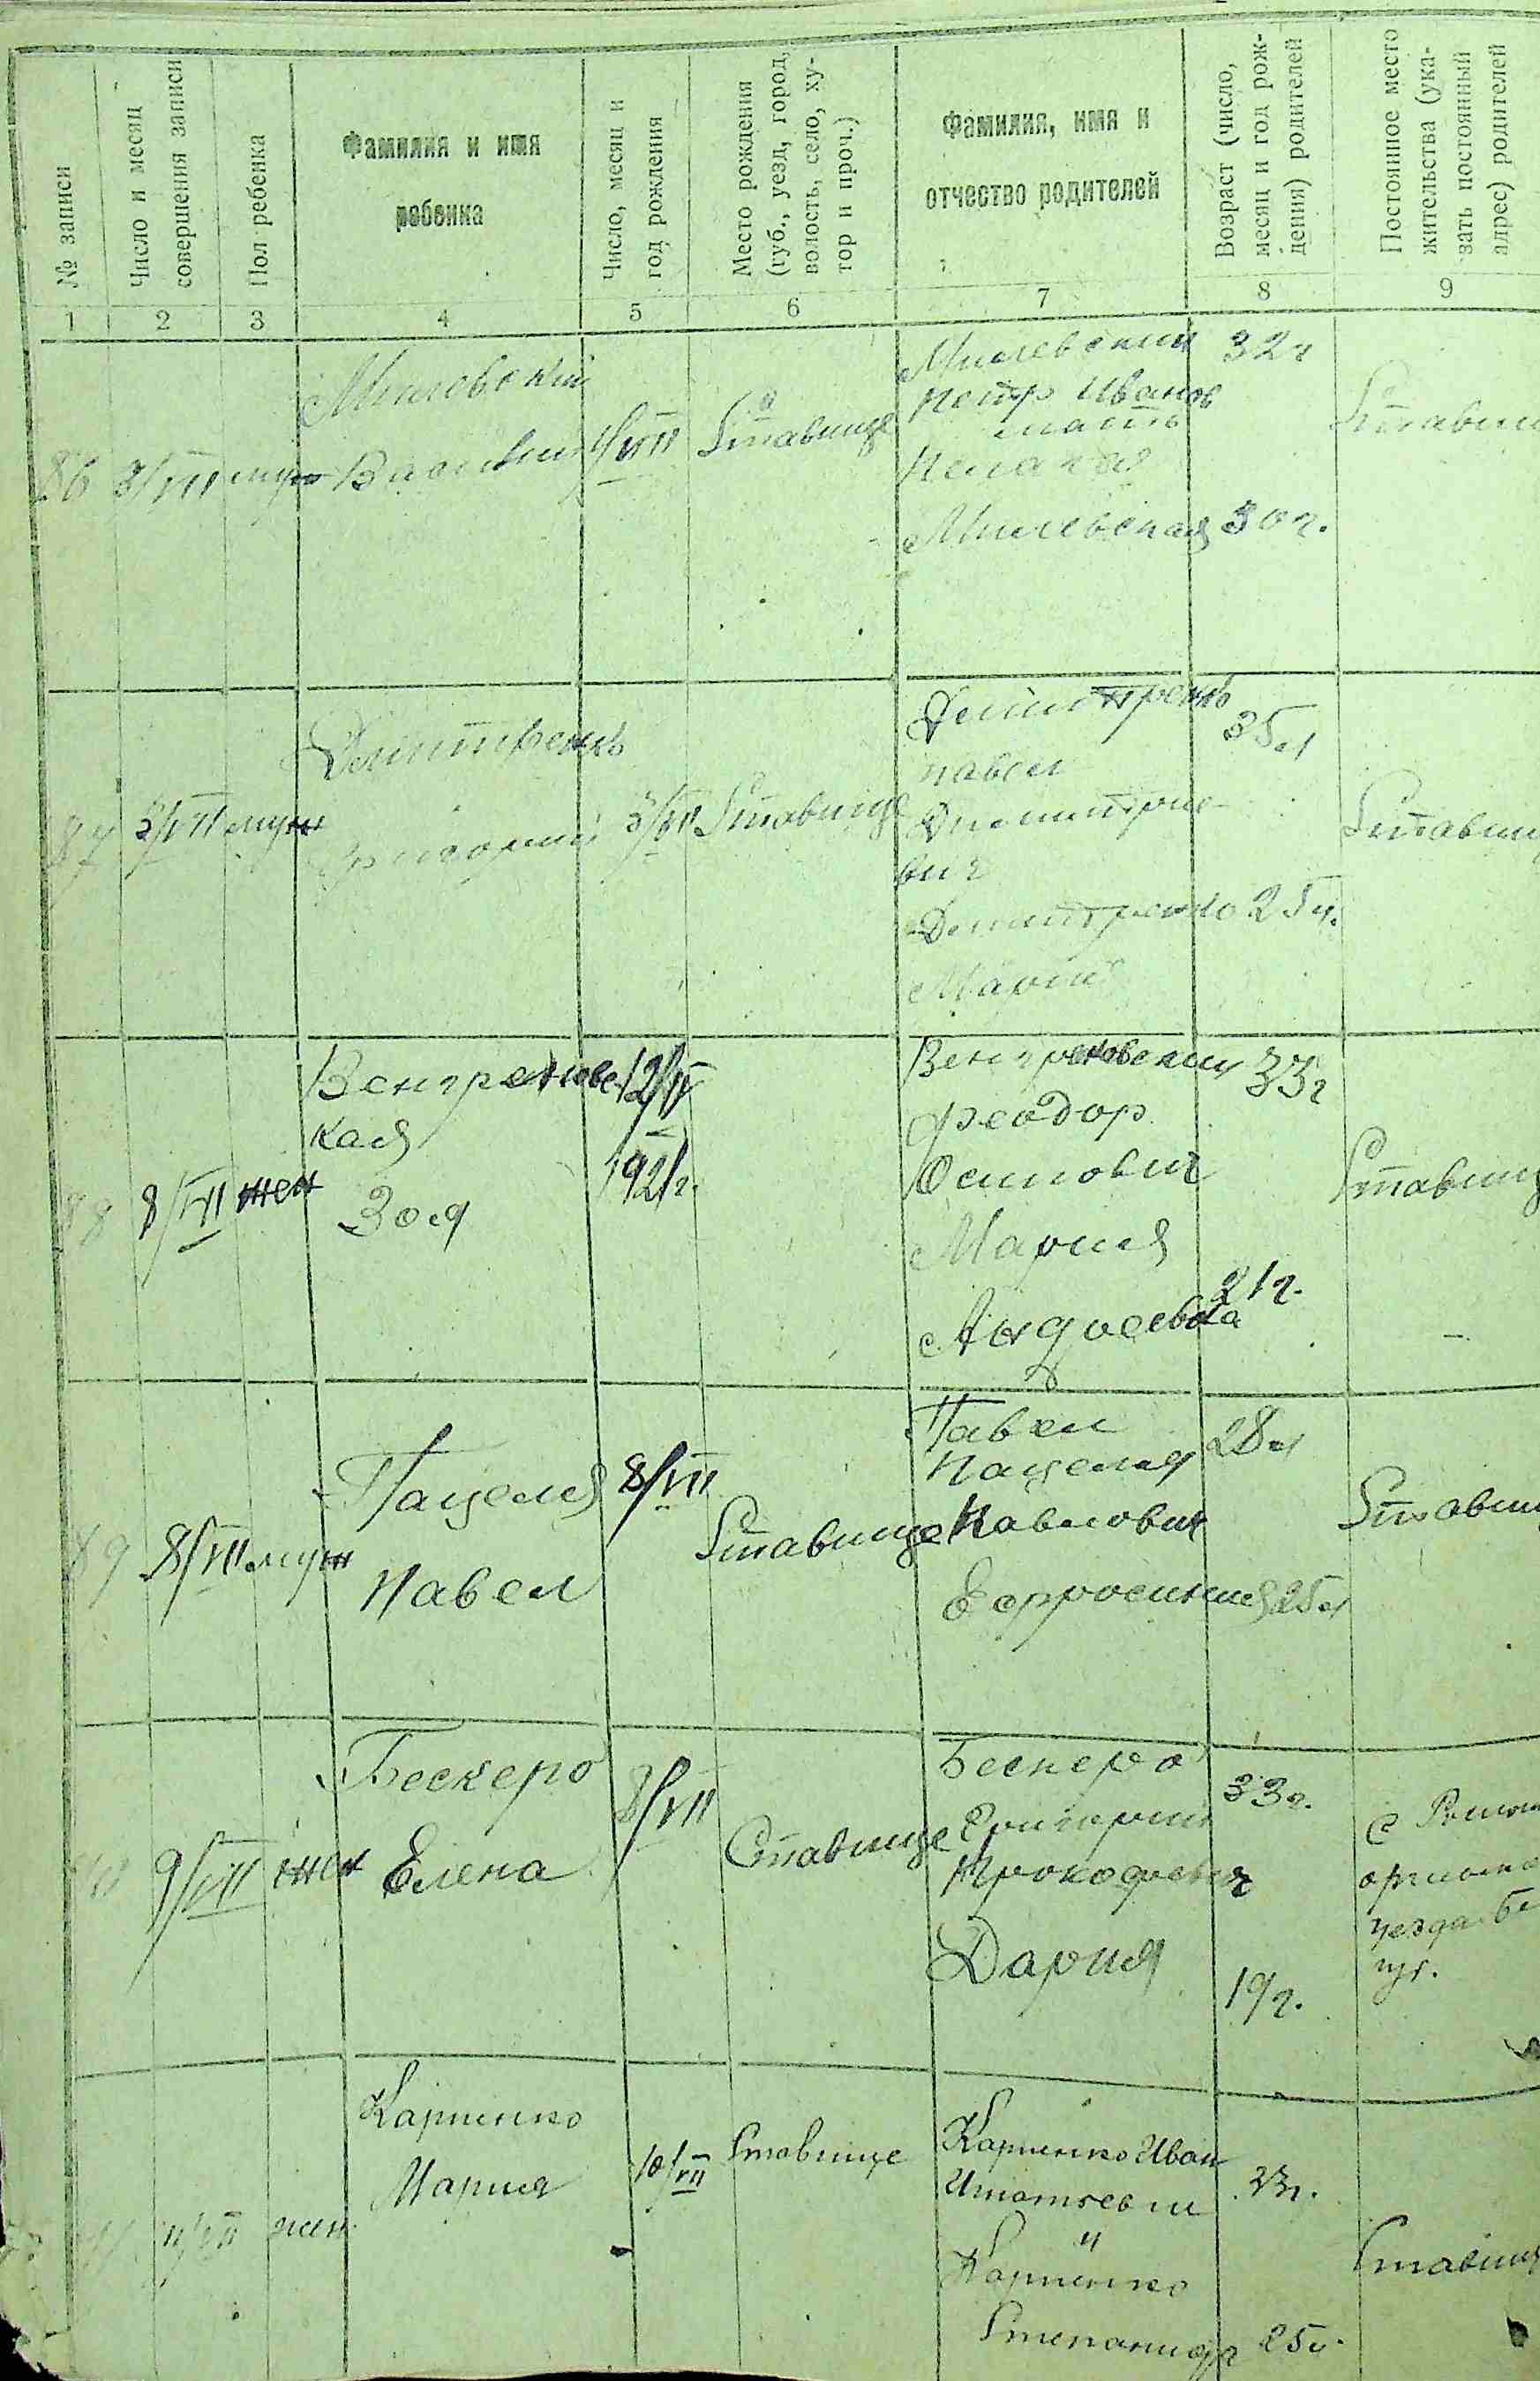 № записи
Число и месяц
совершения записи
Пол ребенка
Фамилия и имя
ребенка
Число, месяц и
год рождения
Место рождения
(губ., уезд, город,
волость, село, ху-
тор и проч.)
Фамилия, имя и
отчество родителей
Возраст (число,
месяц и год рож-
дения) родителей
Постоянное место
жительства (ука-
зать постоянный
адрес) родителей
1 2 3 4 5 6 7 8 9
86 3/VII муж
Милевский
Василий
1/VII
Ставище
Милевский
Петр Иванов
мать
Пелагия
Милевская
32 г
30 г.
Ставищ
87 3/VII муж
Дмитренко
Григорий
3/VII
Ставище
Дмитренко
Павел
Дмитрие-
вич
Дмитренко
Мария
35 л
25 л.
Ставищ
88 8/VII жен
Венгреновс
кая
Зоя
12/IV
1921 г.
Венгреновский
Феодор
Осипович
Мария
Андреевна
33 г
21 г.
Ставищ
89 8/VII муж
Пацеля
Павел
8/VII
Ставище
Павел
Пацеля
Павлович
Ефросиния
28 л
25 л
Ставищ
90 9/VII жен
Бескеро
Елена
8/VII
Ставище
Бескеро
Григорий
Прокофьевич
Дария
33 г.
19 г.
с
уезда
губ.
91 11/VII жен.
Карпенко
Мария
10/VII
Ставище
Карпенко Иван
Игнатьевич
и
Карпенко
Степанида
23 г.
25 л.
Ставищ